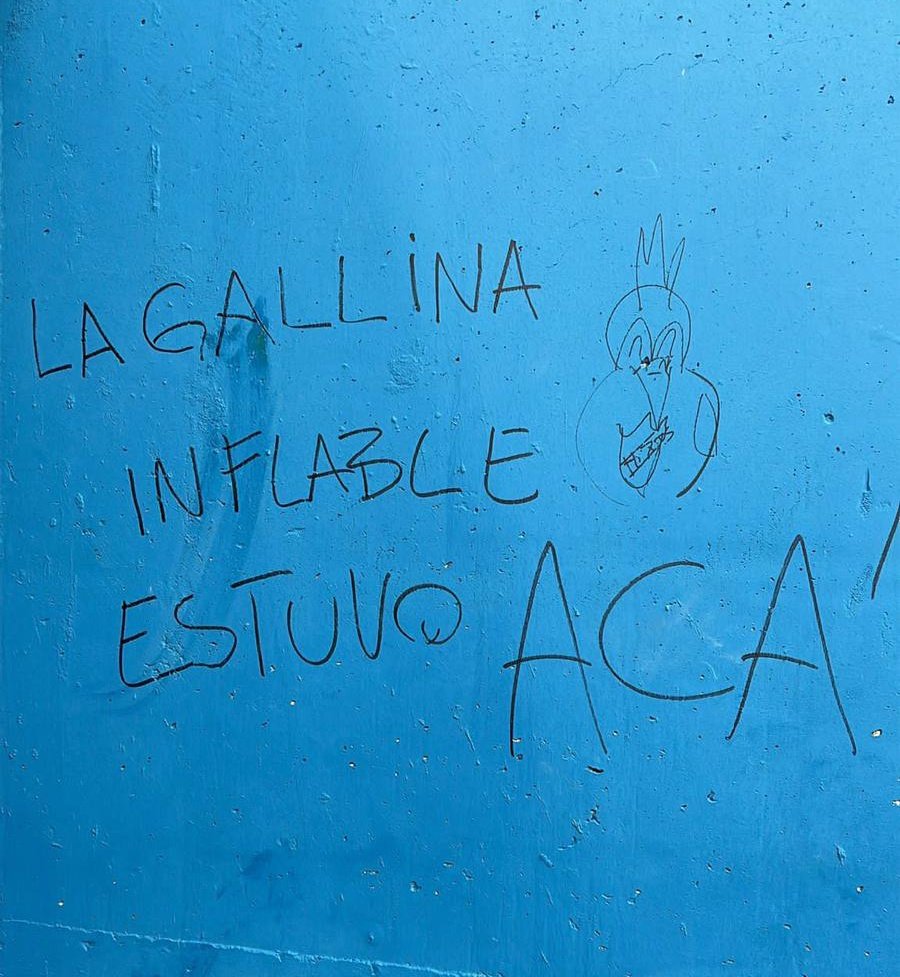 LA GALLiNA
INFLABLE
ESTUVO ACA